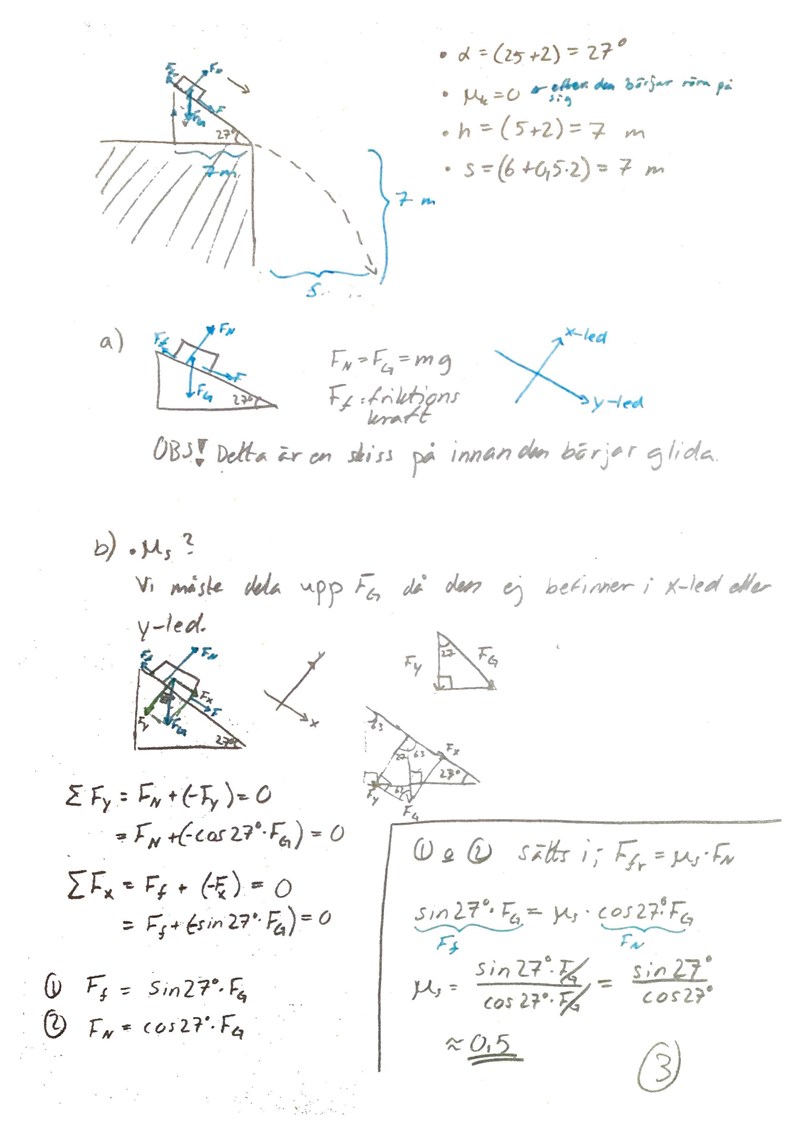 • α = (25+2) = 27°
• μₖ = 0 ← efter den börjar röra på sig
• h = (5+2) = 7 m
• s = (6+0,5·2) = 7 m
F_f F_N
F
F_G
27°
7 m
7 m
s
a)
F_f F_N
F
F_G
27°
F_N = F_G = mg
F_f = friktions
kraft
x-led
y-led
OBS! Detta är en skiss på innan den börjar glida.
b) • μₛ ?
Vi måste dela upp F_G då den ej befinner i x-led eller
y-led.
F_f F_N
F_x
F
F_y F_G
27°
y
x
F_y 27 F_G
63
27 63 F_x
27°
F_y
F_G
ΣF_y = F_N + (-F_y) = 0
= F_N + (-cos27°·F_G) = 0
ΣF_x = F_f + (-F_x) = 0
= F_f + (-sin27°·F_G) = 0
① F_f = sin27°·F_G
② F_N = cos27°·F_G
① o ② sätts i; F_fr = μₛ·F_N
sin27°·F_G = μₛ·cos27°·F_G
F_f F_N
μₛ = sin27°·F_G / cos27°·F_G = sin27° / cos27°
≈ 0,5
③